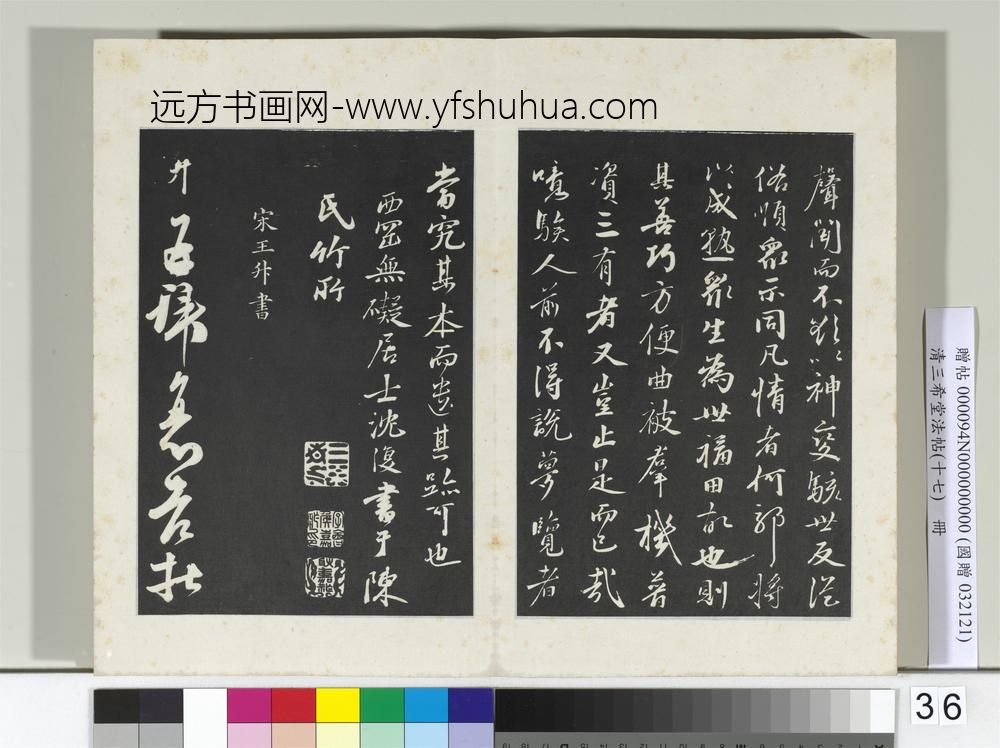 远方书画网-www.yfshuhua.com
聲聞而不欺以神变駭世反從
俗順眾示同凡情者何耶將
以成熟眾生為世福田故也則
其善巧方便曲被羣機普
資三有者又豈止是而已哉
噫騃人前不得說夢覽者
當究其本而遺其跡可也
西罡無礙居士沈復書于陳
民竹所
宋王升書
升
贈帖 000094N000000000 (國贈 032121)
清三希堂法帖(十七) 冊
36